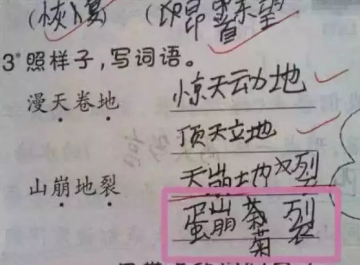 (恢复) (昂首东望
3*照样子,写词语。
漫天卷地 惊天动地
顶天立地
山崩地裂 天崩地裂
蛋崩菊裂
菊